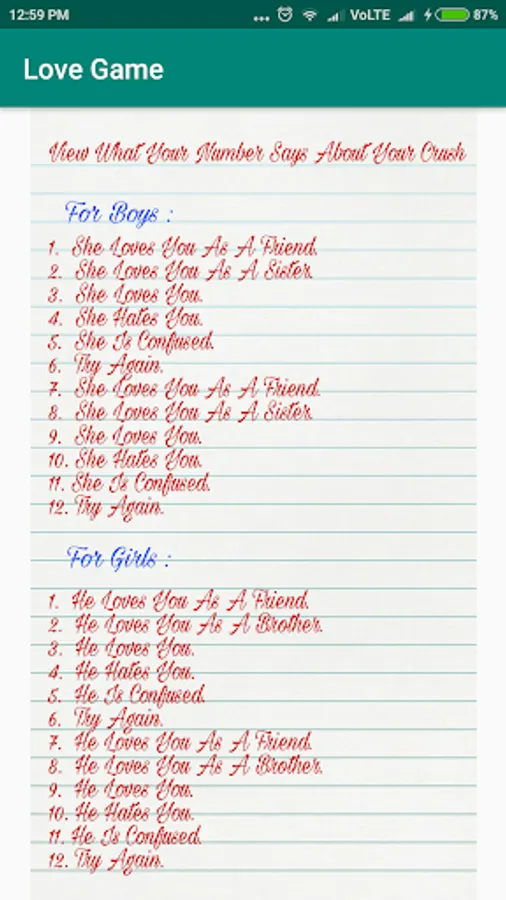 12:59 PM ... VoLTE 87%
Love Game
View What Your Number Says About Your Crush
For Boys :
1. She Loves You As A Friend.
2. She Loves You As A Sister.
3. She Loves You.
4. She Hates You.
5. She Is Confused.
6. Try Again.
7. She Loves You As A Friend.
8. She Loves You As A Sister.
9. She Loves You.
10. She Hates You.
11. She Is Confused.
12. Try Again.
For Girls :
1. He Loves You As A Friend.
2. He Loves You As A Brother.
3. He Loves You.
4. He Hates You.
5. He Is Confused.
6. Try Again.
7. He Loves You As A Friend.
8. He Loves You As A Brother.
9. He Loves You.
10. He Hates You.
11. He Is Confused.
12. Try Again.